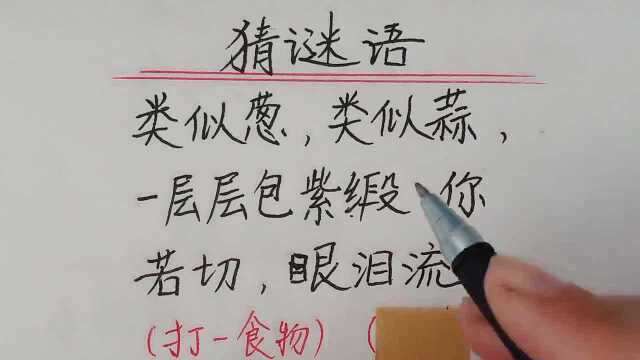 猜谜语
类似葱，类似蒜，
一层层包紫缎 你
若切，眼泪流
（打一食物）（